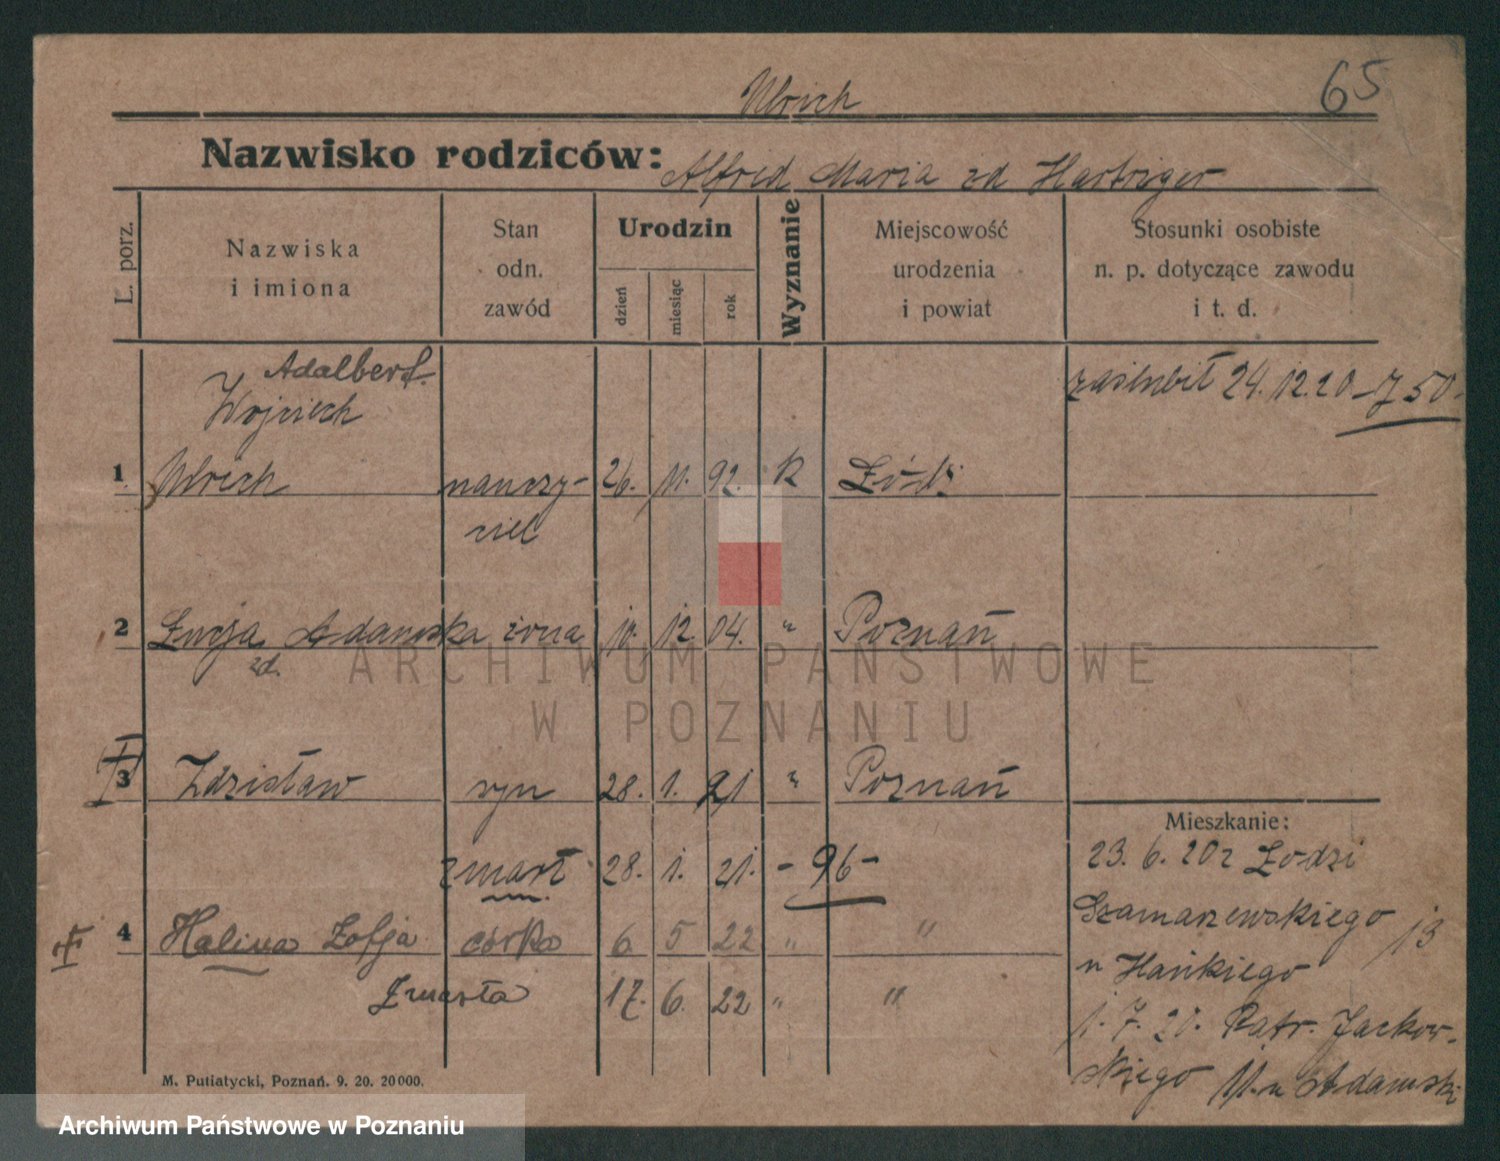 Ulrich
65
Nazwisko rodziców: Alfred Maria zd Hartziger
L. porz.
Nazwiska
i imiona
Stan
odn.
zawód
Urodzin
dzień
miesiąc
rok
Wyznanie
Miejscowość
urodzenia
i powiat
Stosunki osobiste
n. p. dotyczące zawodu
i t. d.
Adalbert
Wojciech
zaślubił 24.12.20 - 750-
1 Ulrich nauczy- 26. 11. 92. K Łódź
ciel
2 Łucja Adamska żona 10. 12. 04. " Poznań
zd.
3 Zdzisław syn 28. 1. 21 " Poznań
zmarł 28. 1. 21. - 96 -
4 Halina Zofja córka 6 5 22 " "
Zmarła 17. 6. 22 " "
Mieszkanie:
23. 6. 20 z Łodzi
Szamarzewskiego 13
u Hańkiego
1. 7. 20. Patr. Jackow-
skiego u Adamski
M. Putiatycki, Poznań. 9. 20. 20000.
ARCHIWUM PAŃSTWOWE
W POZNANIU
Archiwum Państwowe w Poznaniu